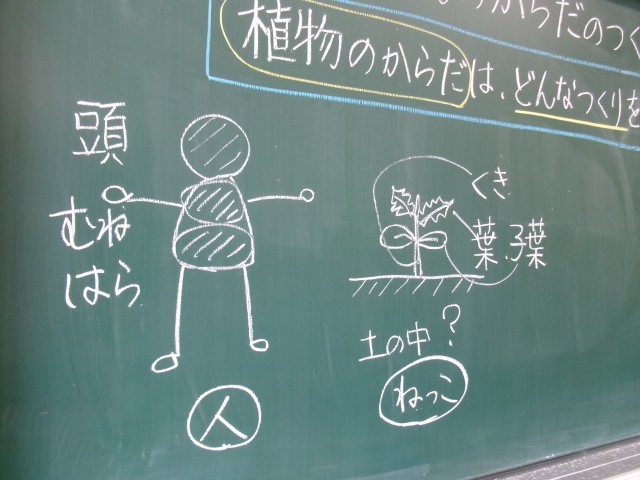 からだのつく
植物のからだは、どんなつくりを
頭
むね
はら
人
くき
葉 子葉
土の中?
ねっこ